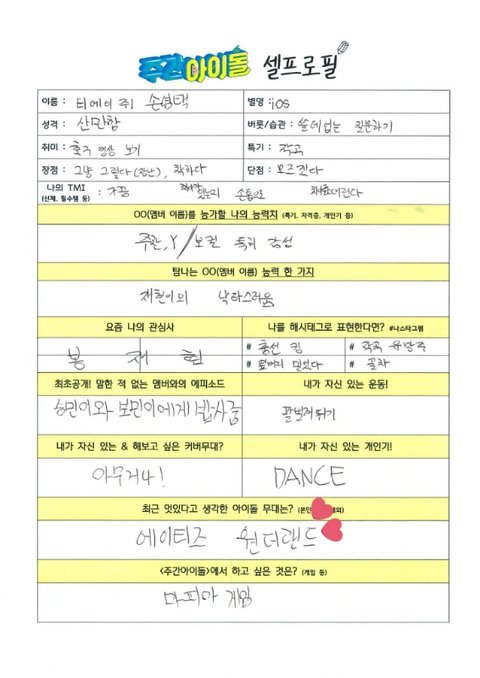 주간아이돌 셀프로필
이름 : 티에이쥐 손영택 별명 : iOS
성격 : 산만함 버릇/습관 : 쓸데없는 질문하기
취미 : 축구 영상 보기 특기 : 작곡
장점 : 그냥 그렇다(장난), 착하다 단점 : 모르겠다
나의 TMI
(신체, 필수템 등) : 가끔 손톱으로
OO(멤버 이름)를 능가할 나의 능력치 (특기, 자격증, 개인기 등)
주관, Y/보컬 특귀
탐나는 OO(멤버 이름) 능력 한 가지
재현이의 낙타스러움
요즘 나의 관심사 나를 해시태그로 표현한다면? #나스타그램
봉 재 현 # 풍선 킹 # 작곡 유망주
# 멋있다 # 골차
최초공개! 말한 적 없는 멤버와의 에피소드 내가 자신 있는 운동!
승민이와 보민이에게 밥사줌 팔벌려뛰기
내가 자신 있는 & 해보고 싶은 커버무대? 내가 자신 있는 개인기!
아무거나! DANCE
최근 멋있다고 생각한 아이돌 무대는? (본인 제외)
에이티즈 원더랜드
<주간아이돌>에서 하고 싶은 것은? (게임 등)
마피아 게임